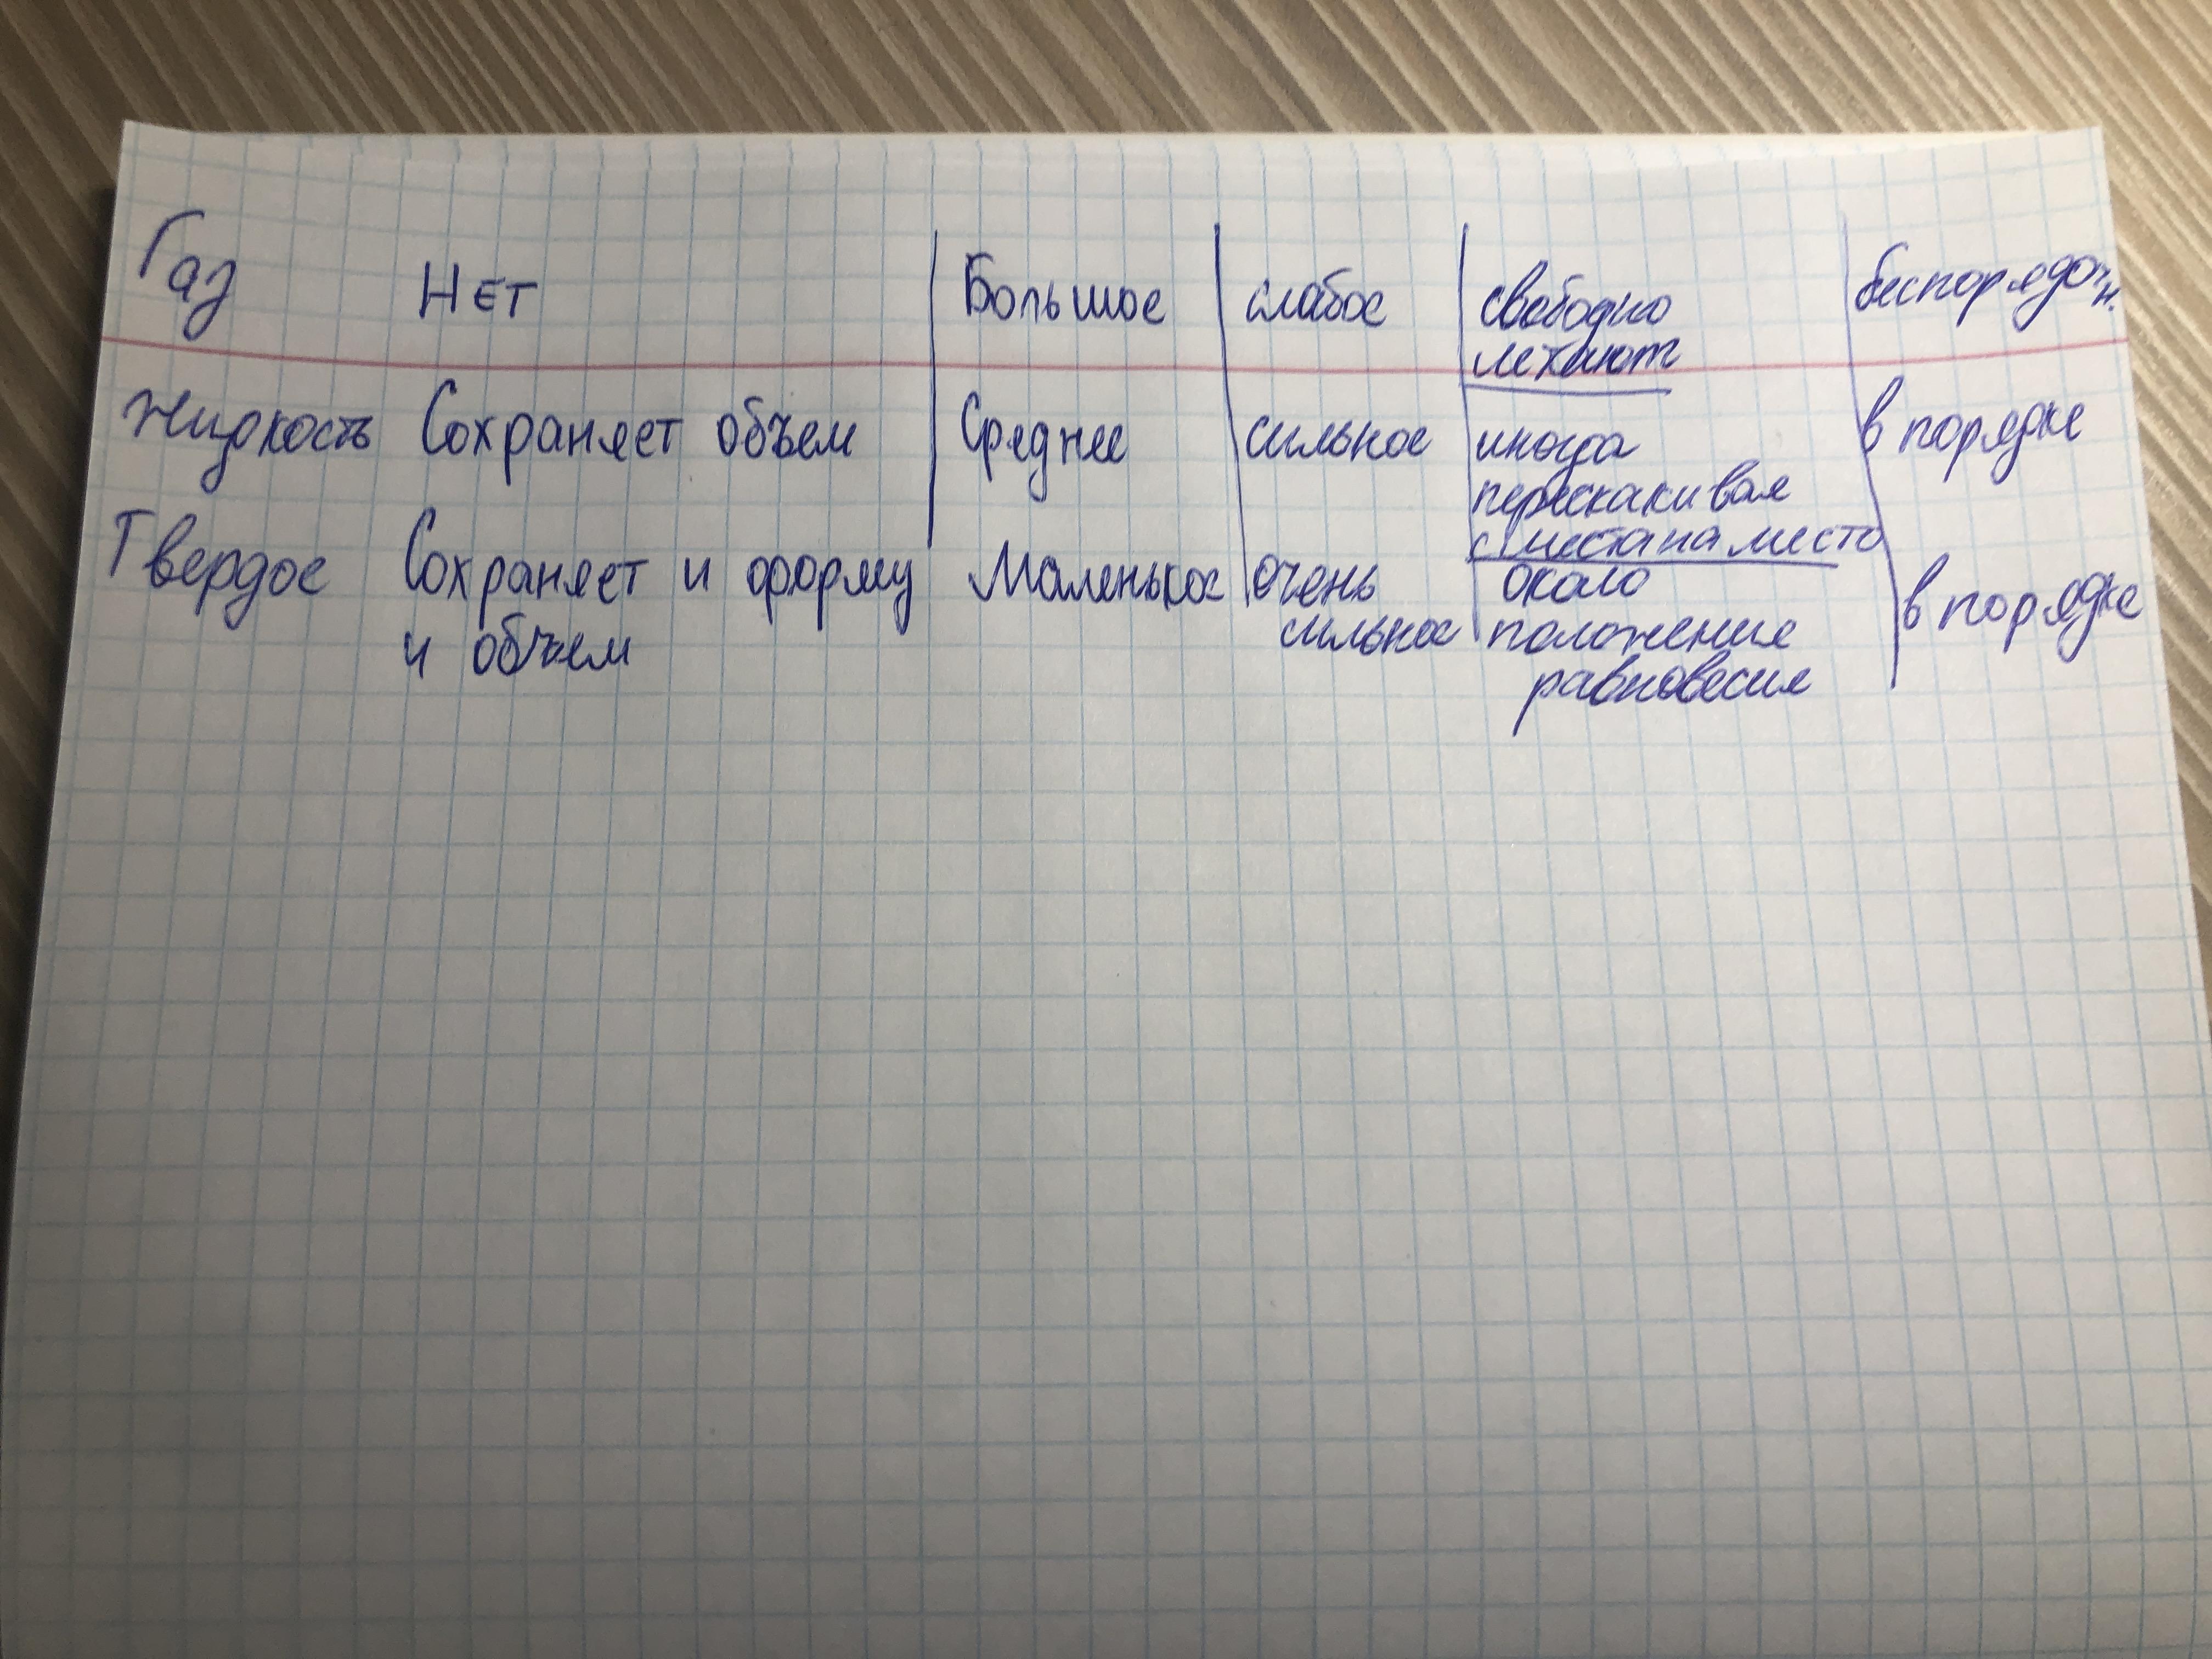 Газ Нет Большое слабое свободно беспорядочн.
летают
Жидкость Сохраняет объем Среднее сильное иногда в порядке
перескакивая
с места на место
Твердое Сохраняет и форму Маленькое очень около в порядке
и объем сильное положение
равновесия